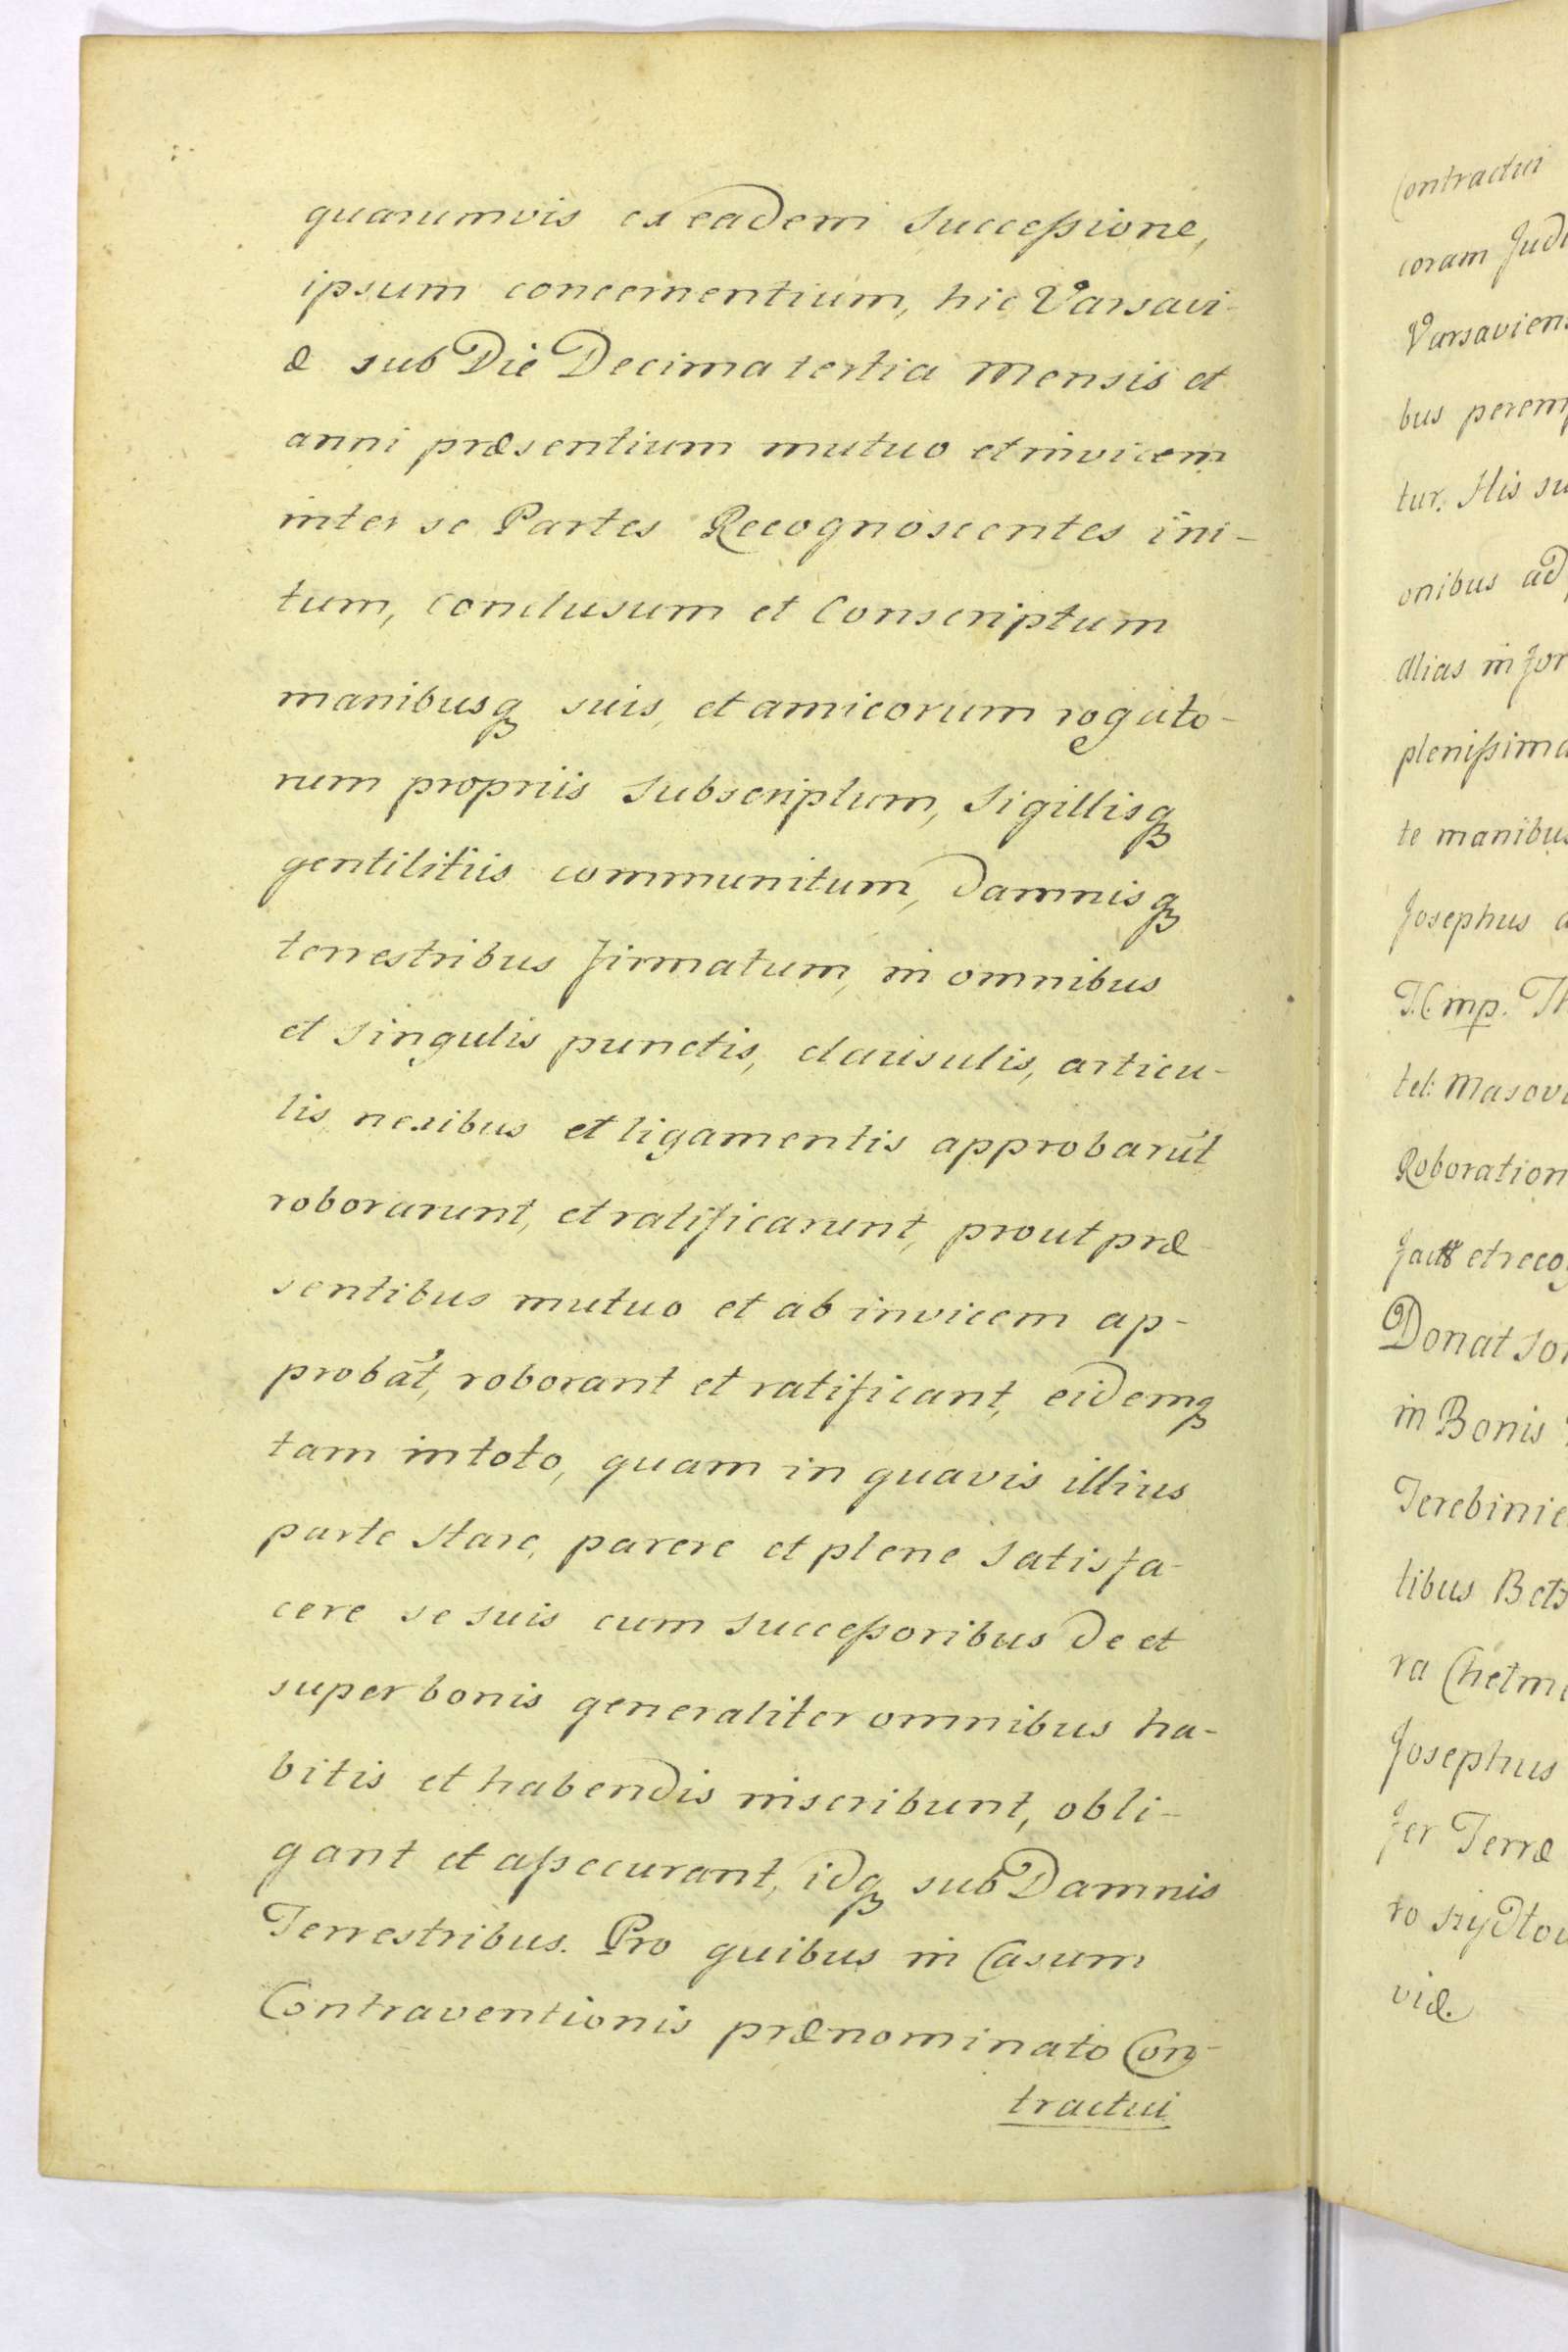 quarumvis ex eadem Successione,
ipsum concernentium, hic Varsavi-
æ sub Die Decima tertia Mensis et
anni præsentium mutuo et invicem
inter se Partes Recognoscentes ini-
tum, conclusum et Conscriptum
manibusq suis, et amicorum rogato-
rum propriis Subscriptum, Sigillisq
gentilitiis communitum, Damnisq
terrestribus firmatum, in omnibus
et Singulis punctis, clausulis, articu-
lis, nexibus et ligamentis approbarūt
roborarunt, et ratificarunt, prout præ-
sentibus mutuo et ab invicem ap-
probāt, roborant et ratificant, eidemq
tam in toto, quam in quavis illius
parte Stare, parere et plene Satisfa-
cere se suis cum Successoribus De et
super bonis generaliter omnibus ha-
bitis et habendis inscribunt, obli-
gant et assecurant, idq sub Damnis
Terrestribus. Pro quibus in Casum
Contraventionis prænominato Con-
tractui
Contractui
coram Judi
Varsaviens
bus peremp
tur. His su
onibus ad
alias in for
plenissima
te manibus
Josephus a
J.C. mp. Th
tel: Masovi
Roboration
et recog
Donat Sor
in Bonis
Terebinie
tibus Betz
ra Chelme
Josephus
fer Terræ
ro szydłow
viæ.